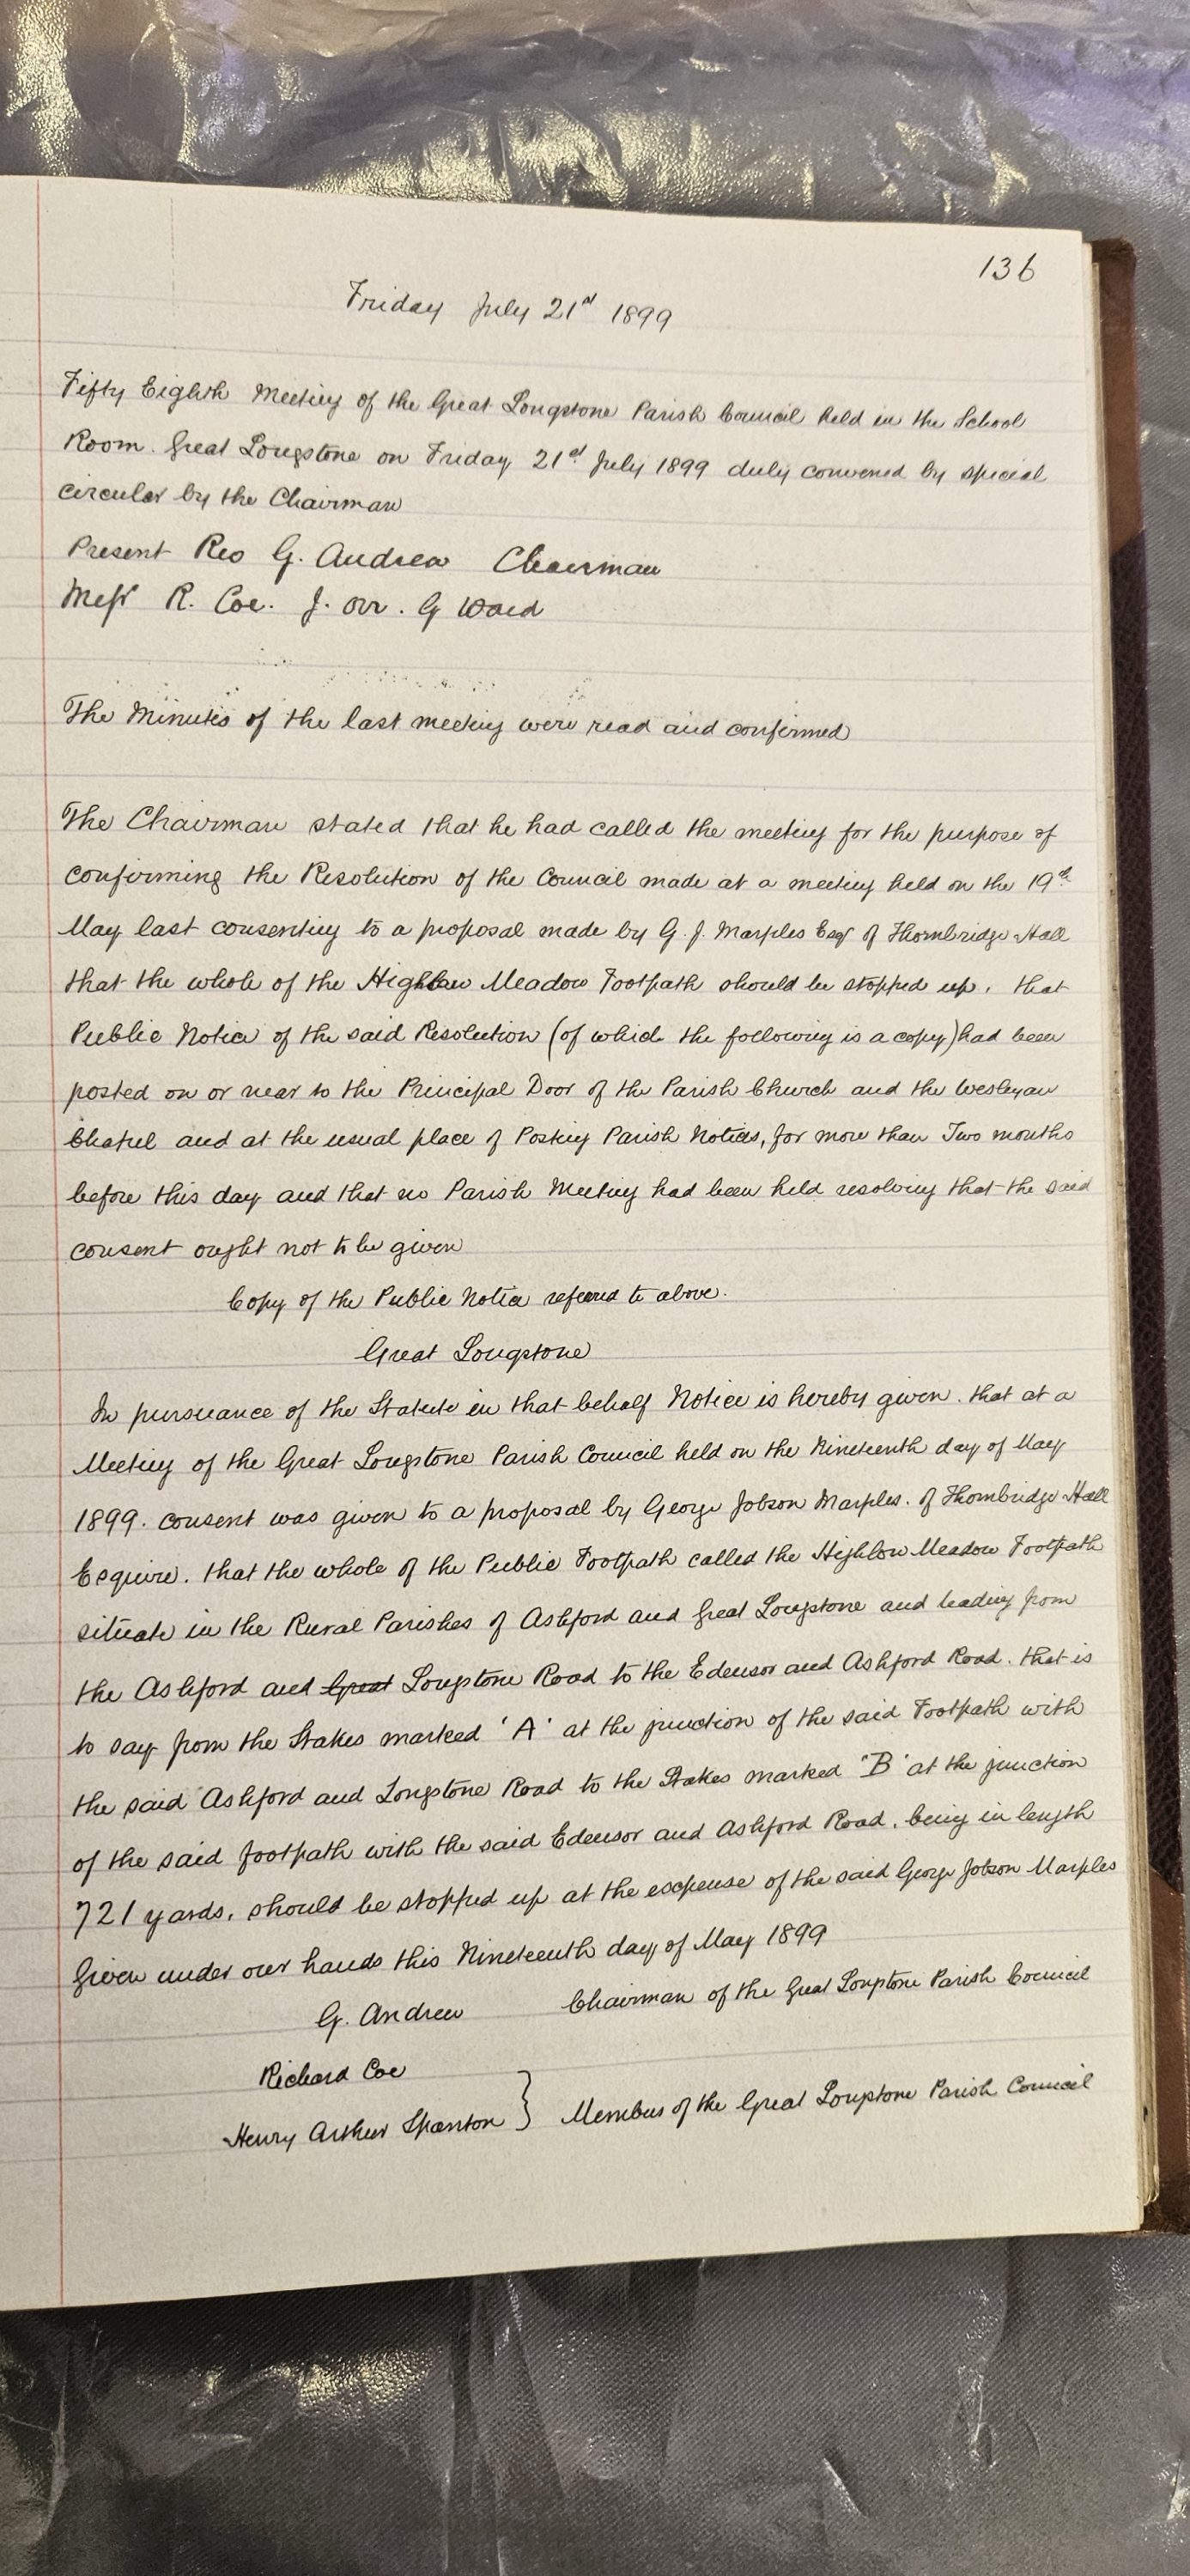 136
Friday July 21st 1899
Fifty Eighth Meeting of the Great Longstone Parish Council held in the School
Room. Great Longstone on Friday 21st July 1899 duly convened by special
circular by the Chairman
Present Rev G. Andrew Chairman
Messrs R. Coe. J. Orr. G Ward
The Minutes of the last meeting were read and confirmed
The Chairman stated that he had called the meeting for the purpose of
confirming the Resolution of the Council made at a meeting held on the 19th
May last consenting to a proposal made by G. J. Marples Esqr of Thornbridge Hall
that the whole of the Highlow Meadow Footpath should be stopped up. that
Public Notice of the said Resolution (of which the following is a copy) had been
posted on or near to the Principal Door of the Parish Church and the Wesleyan
Chapel and at the usual place of Posting Parish Notices, for more than Two months
before this day and that no Parish Meeting had been held resolving that the said
consent ought not to be given
Copy of the Public Notice referred to above.
Great Longstone
In pursuance of the Statute in that behalf Notice is hereby given. that at a
Meeting of the Great Longstone Parish Council held on the Nineteenth day of May
1899. consent was given to a proposal by George Jobson Marples. of Thornbridge Hall
Esquire. that the whole of the Public Footpath called the Highlow Meadow Footpath
situate in the Rural Parishes of Ashford and Great Longstone and leading from
the Ashford and Great Longstone Road to the Edensor and Ashford Road. that is
to say from the Stakes marked 'A' at the junction of the said Footpath with
the said Ashford and Longstone Road to the Stakes marked 'B' at the junction
of the said footpath with the said Edensor and Ashford Road. being in length
721 yards. should be stopped up at the expense of the said George Jobson Marples
Given under our hands this Nineteenth day of May 1899
G. Andrew Chairman of the Great Longstone Parish Council
Richard Coe
Henry Arthur Spanton } Members of the Great Longstone Parish Council